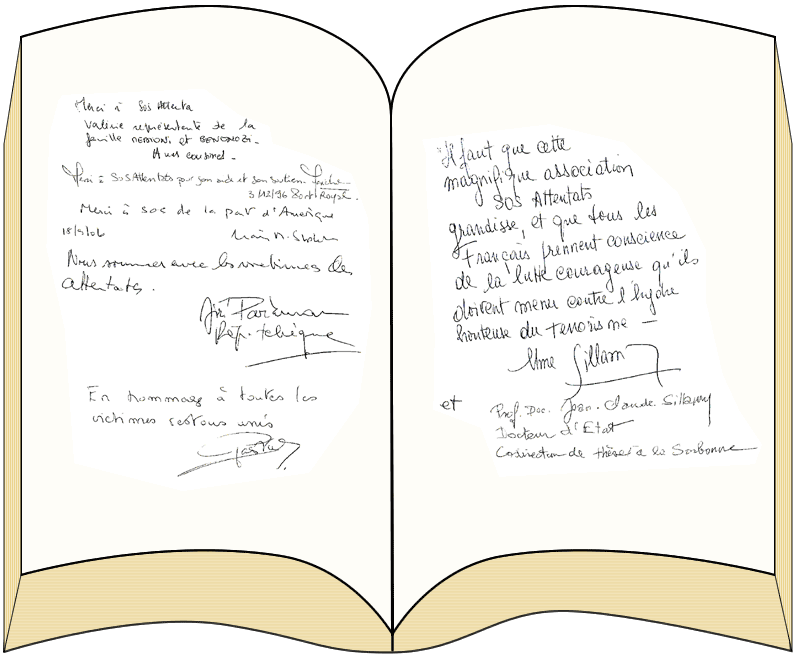 Merci à Sos Attenta
Valérie représentente de la
famille et BENONOZI.
A mes cousines.
Merci à SOS Attentats pour son aide et son soutien.
3/12/96 Port Royal.
Merci à sos de la part d'Amérique
18/9/06
Nous sommes avec les victimes des
attentats.
Jiří
Rép. tchèque
En hommag à toutes les
victimes restons unis
Il faut que cette
magnifique association
SOS Attentats
grandisse, et que tous les
Français prennent conscience
de la lutte courageuse qu'ils
doivent mener contre l'hydre
honteuse du terrorisme —
Mme Sillam
et
Prof. Doc. Jean-Claude Sillamy
Docteur d'Etat
Codirection de thèses à la Sorbonne